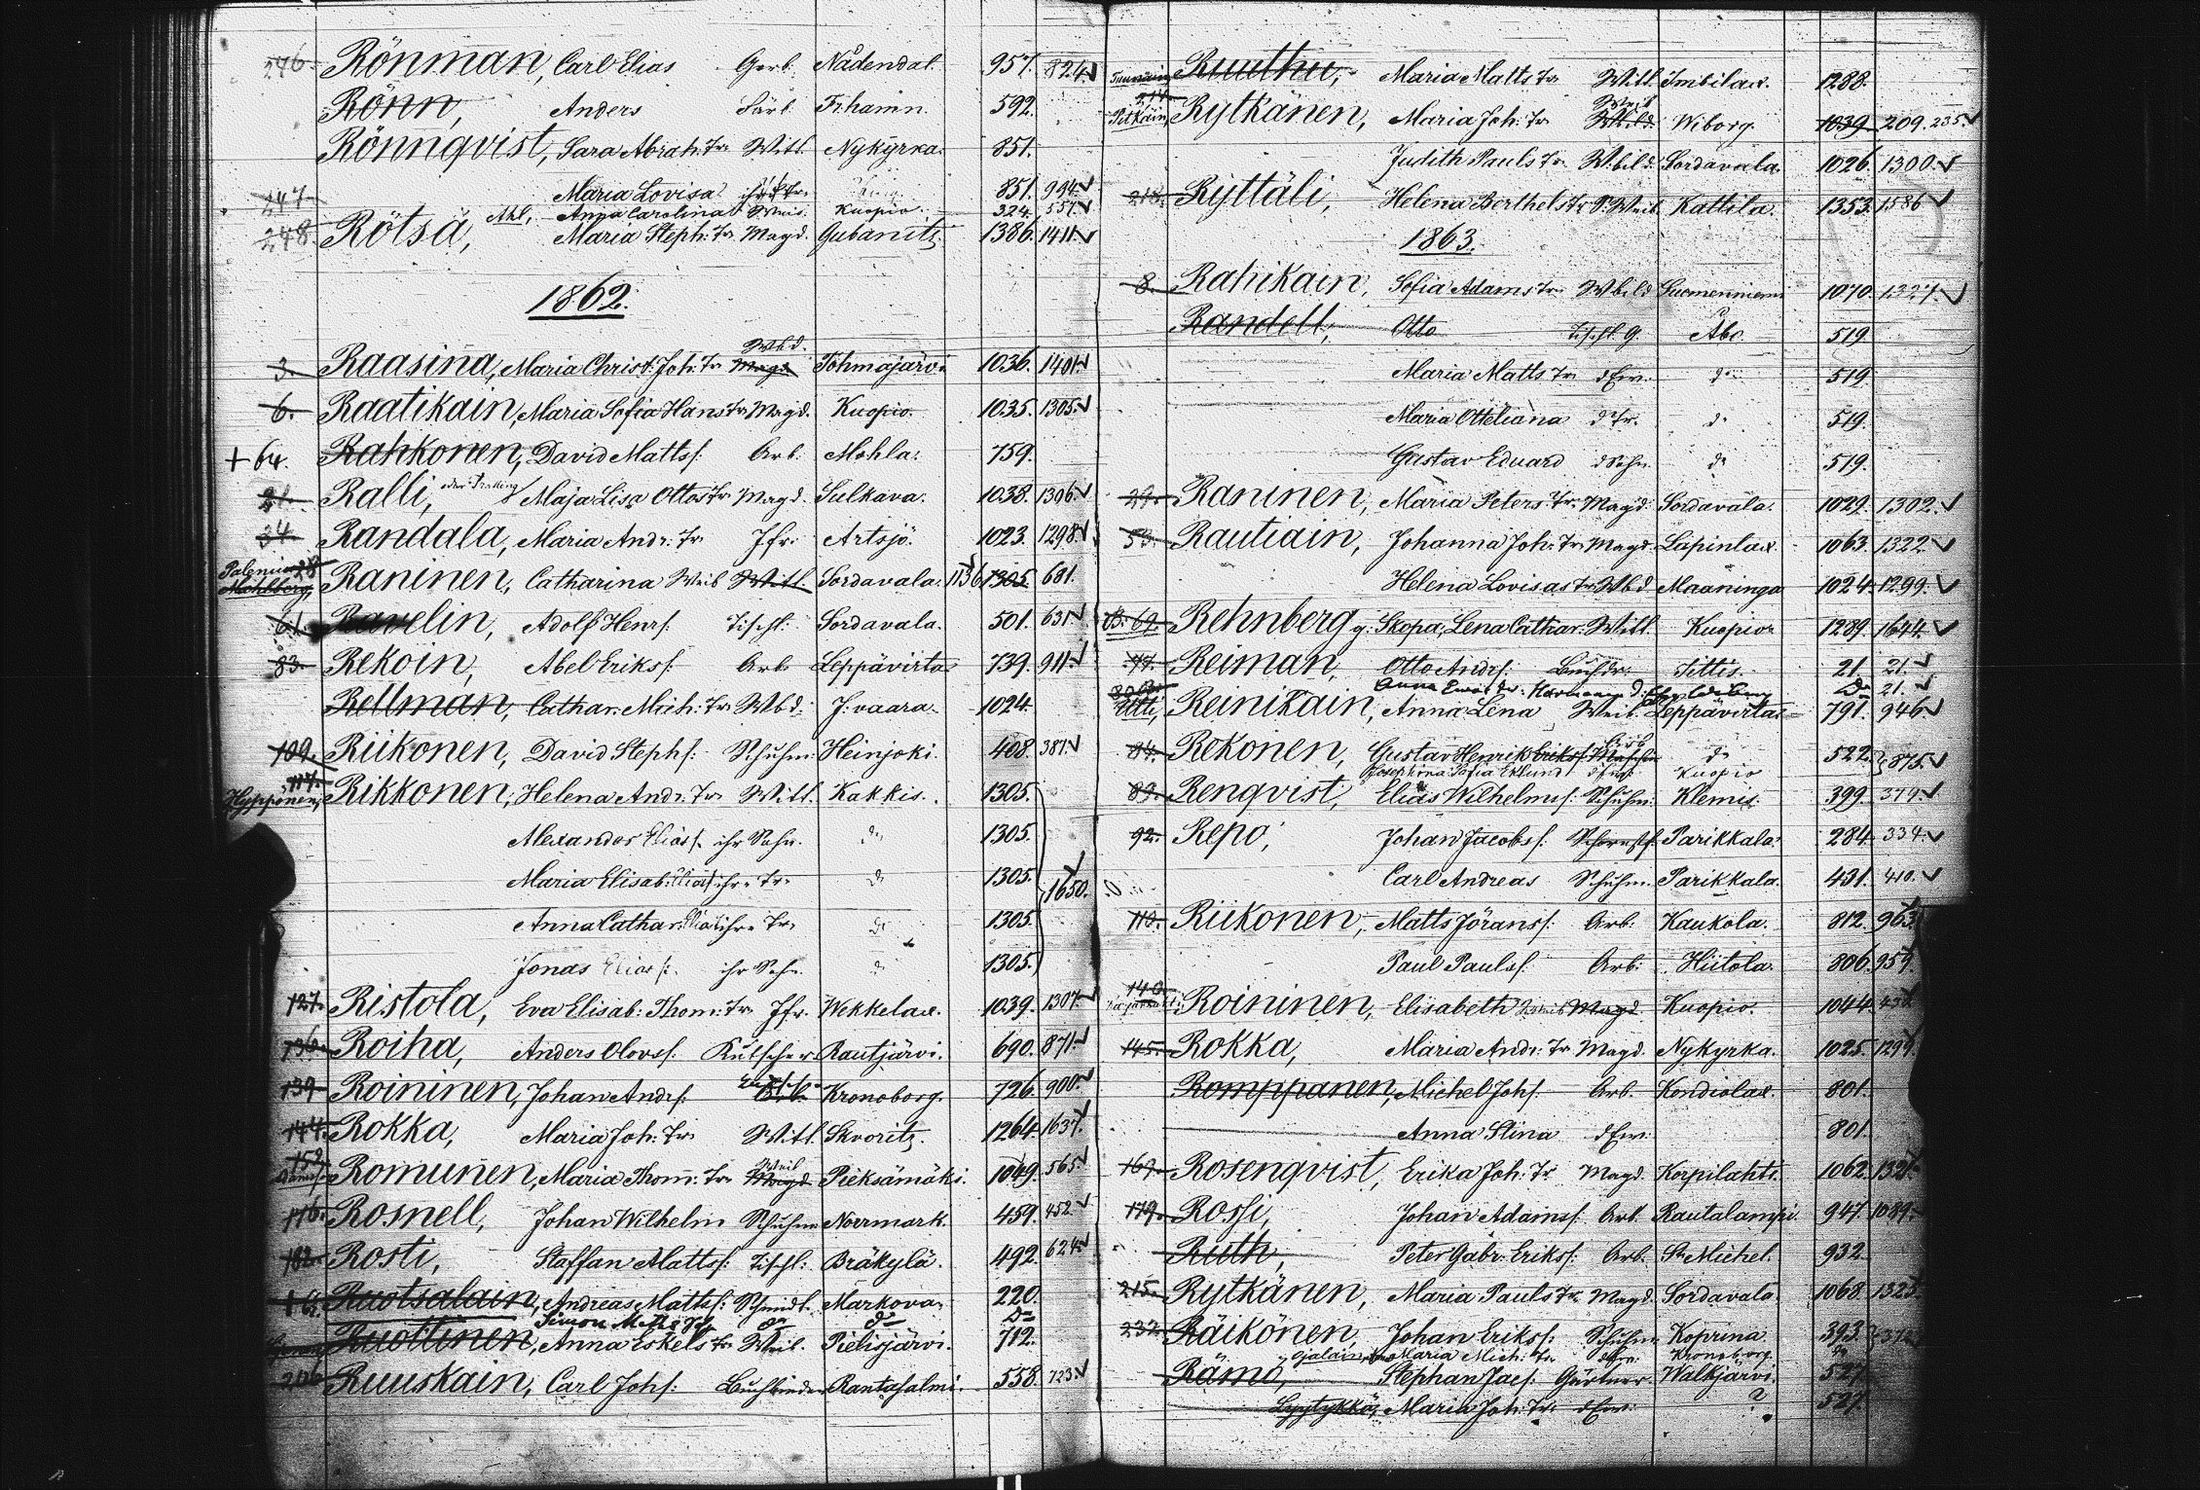 246. Rönman, Carl Elias Gerb. Nådendal. 957. 824.
Rönn, Anders Färb. Frhamn. 592.
Rönnqvist, Sara Abrah: Tr Witt. Nykyrka. 851.
247. Maria Lovisa ihr Tr. 851. 994.
Ahl, Anna Carolina Weib. Kuopio. 324. 557.
248. Rötsä, Maria Steph: Tr Magd. Gubanitz. 1386. 1411.
1862.
3. Raasina, Maria Christ: Joh: Tr Magd. Wbd. Tohmajärvi 1036. 1401.
6. Raatikain, Maria Sofia Hans Tr Magd. Kuopio. 1035. 1305.
+ 64. Rahkonen, David Mattsf. Arb. Mohla. 759.
21. Ralli, Maja Lisa Ottos Tr Magd. Sulkava. 1038. 1306.
34. Randala, Maria Andr: Tr Jfr. Artsjö. 1023. 1298.
Raninen, Catharina Weib Witt. Sordavala. 1136 1305. 681.
61. Ravelin, Adolf Henrf. Tischl. Sordavala. 501. 631.
83. Rekoin, Abel Eriksf. Arb. Leppävirta 739. 911.
Rellman, Cathar. Mich: Tr Wbd. J:vaara. 1024.
109. Riikonen, David Stephf. Schuhm: Heinjoki. 408. 387.
117. Hypponen, Rikkonen, Helena Andr. Tr Witt. Kakkis. 1305.
Alexander Eliasf. ihr Sohn. do 1305.
Maria Elisab: Elias ihre Tr. do 1305. 1650.
Anna Cathar. Elias ihre Tr. do 1305.
Jonas Eliasf. ihr Sohn. do 1305.
127. Ristola, Eva Elisab: Thom: Tr Jfr. Wekkelax. 1039. 1307.
136. Roiha, Anders Olovsf. Kutscher Rautjärvi. 690. 871.
139. Roininen, Johan Andrf. Kronoborg. 726. 900.
144. Rokka, Maria Joh: Tr Witt. Skvoritz. 1264. 1637.
152. Romunen, Maria Thom: Tr Magd. Weib Pieksämäki. 1049. 565.
176. Rosnell, Johan Wilhelm Schuhm Norrmark. 459. 452.
182. Rosti, Staffan Mattsf. Tischl: Bräkylä. 492. 624.
Ruotsalain, Andreas Mattsf: Schmidt. Markova. 220.
Simon do do do
Ruottinen, Anna Eskels Tr Weib. Pielisjärvi. 712.
206. Ruuskain, Carl Johf: Buchbinder Rantasalmi. 558. 723.
Ruuthu, Maria Matts Tr Witt. Imbilax. 1288.
Pitkäin, Rytkänen, Maria Joh: Tr Weib Wbild. Wiborg. 1039. 209. 235.
Judith Pauls Tr Wbild. Sordavala. 1026. 1300.
218. Ryttäli, Helena Berthels Tr S. Weib Kattila. 1353. 1586
1863.
8. Rahikain, Sofia Adams Tr Wbild Suomenniemi 1070. 1327.
Randell, Otto Tischl. G. Åbo. 519.
Maria Matts Tr d Frn. do 519.
Maria Otteliana d Tr. do 519.
Gustav Eduard d Sohn. do 519.
29. Raninen, Maria Peters Tr Magd. Sordavala. 1029. 1302.
53. Rautiain, Johanna Joh: Tr Magd. Lapinlax. 1063. 1322.
Helena Lovisas Tr Wbd Maaninga 1024. 1299.
69. Rehnberg g: Skopa, Lena Cathar: Witt. Kuopio. 1289. 1644.
77. Reiman, Otto Andrf: Buchdr: Sittis. 21. 21.
do 21.
Reinikain, Anna Lena Weib. Leppävirta 791. 946.
84. Rekonen, Gustav Henrik Eriksf. do 522. 875.
Josephina Sofia Eklund d Fr. Kuopio
89. Renqvist, Elias Wilhelmsf: Schuhm: Klemis. 399. 379.
92. Repo, Johan Jacobsf: Schornstf. Parikkala. 284. 334.
Carl Andreas Schuhm. Parikkala. 431. 410.
110. Riikonen, Matts Jöransf: Arb: Kaukola. 812. 963.
Paul Paulsf. Arb: Hiitola. 806. 959.
140. Roininen, Elisabeth Weib Magd. Kuopio. 1044.
145. Rokka, Maria Andr: Tr Magd. Nykyrka. 1025. 1299.
Romppanen, Michel Johf. Arb. Kondiolax. 801.
Anna Stina d Frn: 801.
167. Rosenqvist, Erika Joh: Tr Magd. Korpilahti. 1062. 1321.
179. Rossi, Johan Adamsf. Arb. Rautalampi. 947. 1089.
Ruth, Peter Gabr: Eriksf: Arb. St Michel. 932.
215. Rytkänen, Maria Pauls Tr Magd. Sordavala. 1068. 1325.
232. Räikönen, Johan Eriksf: Schuhm. Koprina. 393. 372.
Maria Mich: Tr d Frn: Kronoborg
Rämö, Stephan Jacf: Gärtner Walkjärvi. 527.
Lyytykkö, Maria Joh: Tr d Frn: ? 527.